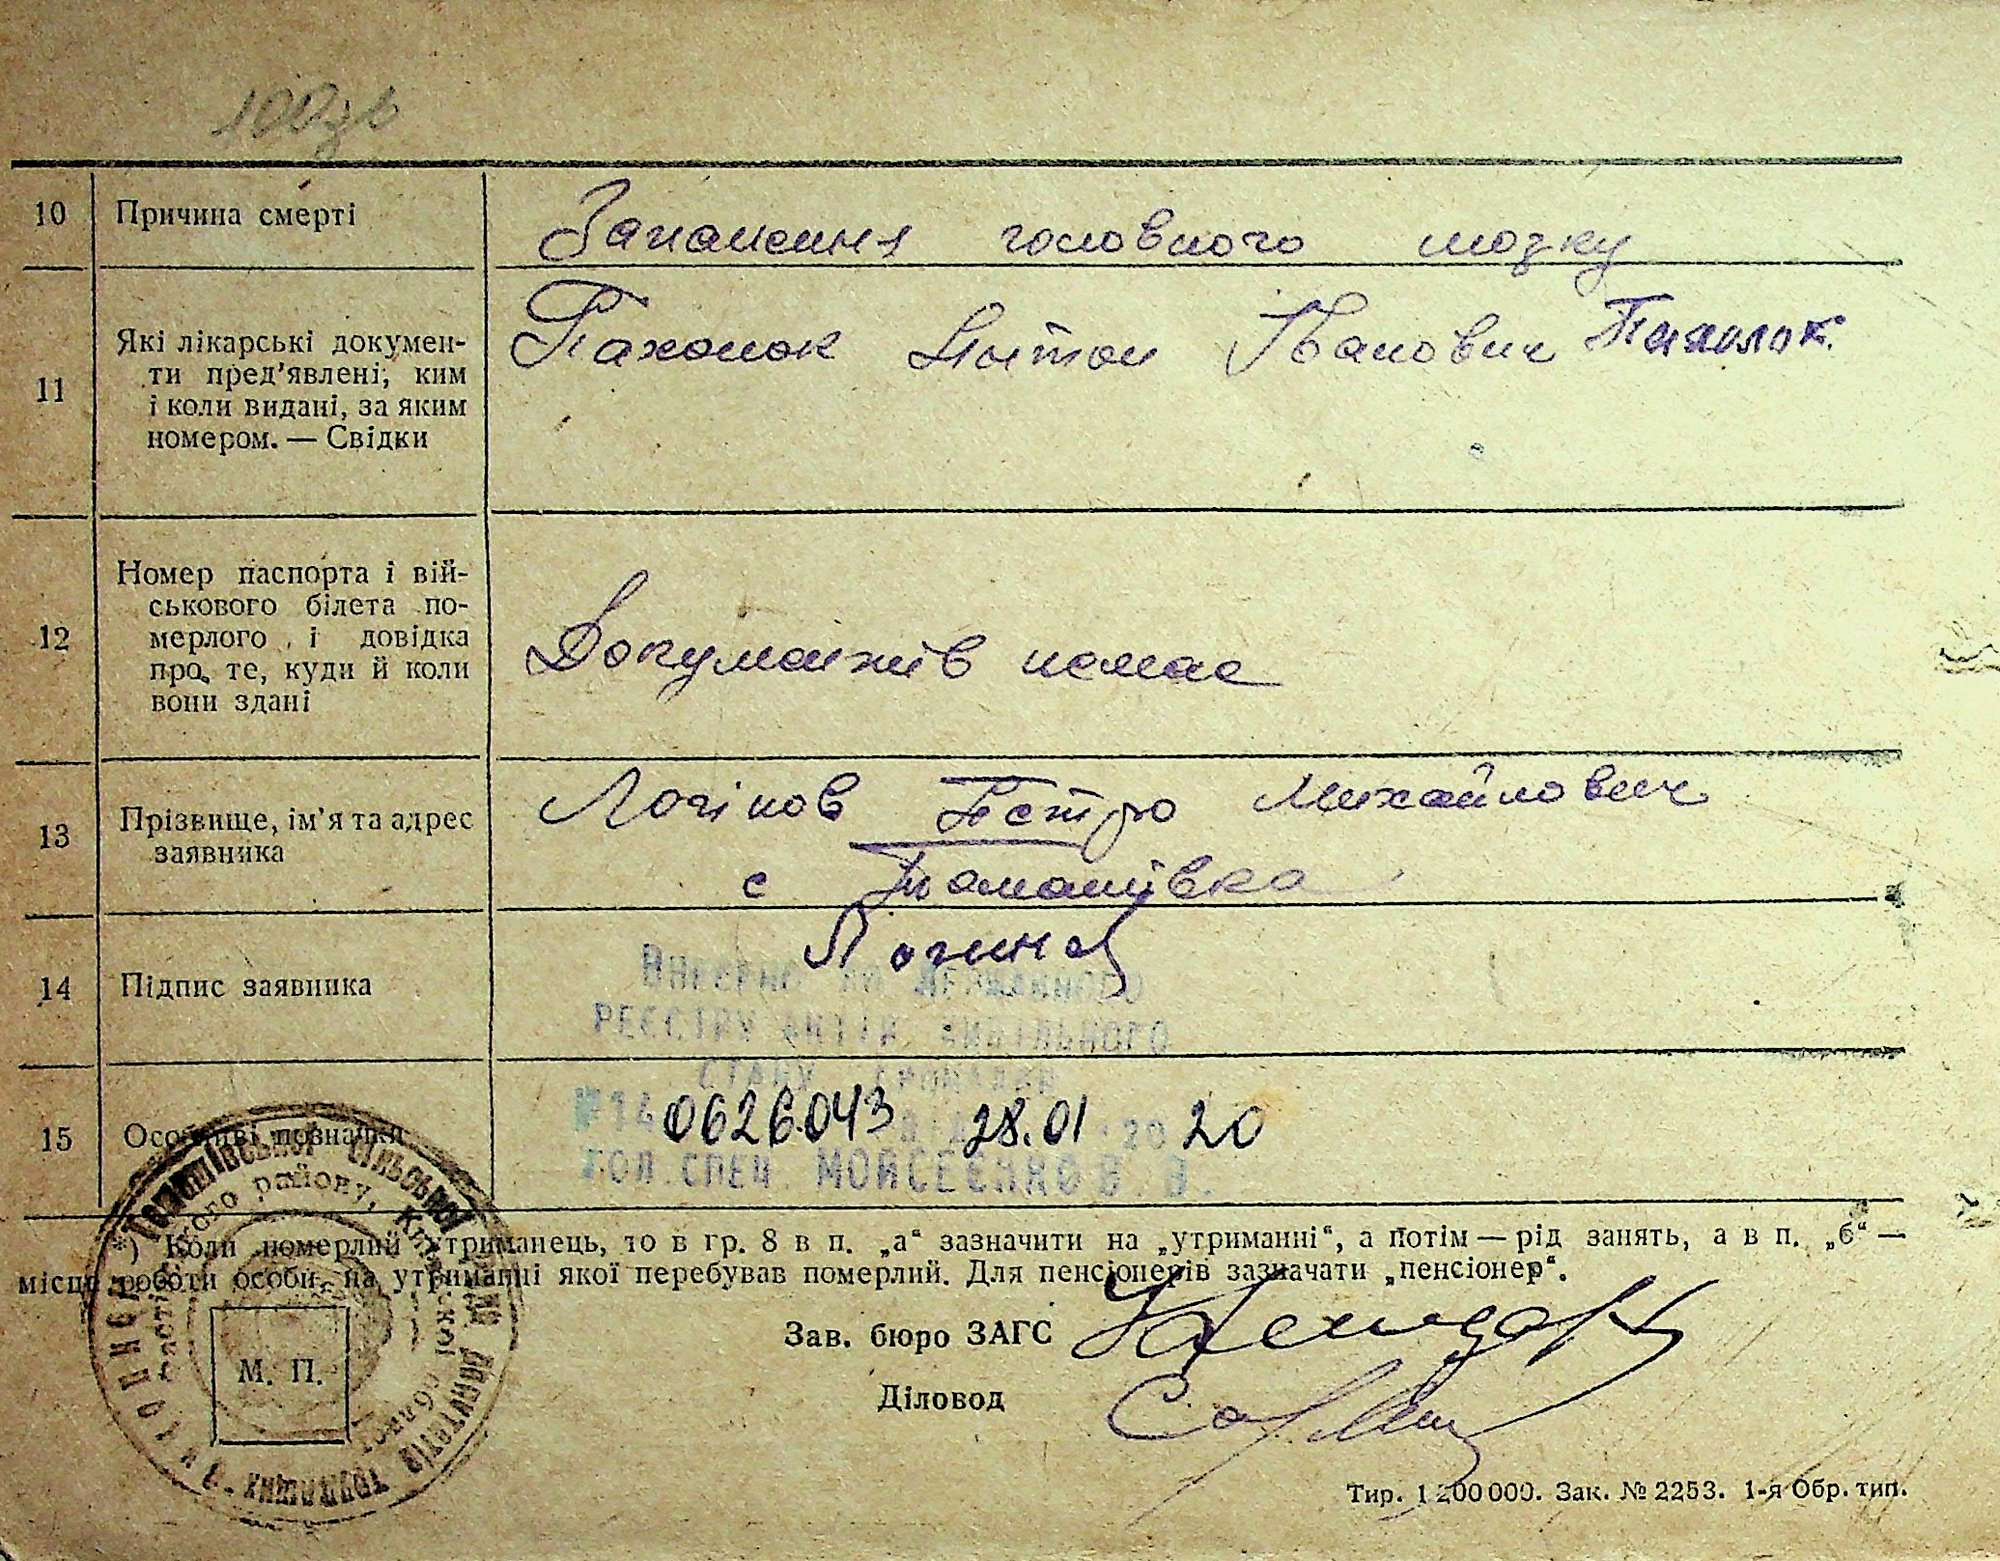 10 Причина смерті Запалення головного мозку
11 Які лікарські докумен-
ти пред'явлені, ким
і коли видані, за яким
номером. — Свідки
Пахолок Антон Іванович Пахолок
12 Номер паспорта і вій-
ськового білета по-
мерлого і довідка
про те, куди й коли
вони здані
Документів немає
13 Прізвище, ім'я та адрес
заявника
Логінов Петро Михайлович
с Томашівка
14 Підпис заявника Логинов
Внесено до Державного
реєстру актів цивільного
стану громадян
15 Особливі позначки
№14 0626043 28.01.2020
гол. спец. Моисеєнко В. В.
*) Коли померлий утриманець, то в гр. 8 в п. „а“ зазначити на „утриманні“, а потім — рід занять, а в п. „б“ —
місце роботи особи, на утриманні якої перебував померлий. Для пенсіонерів зазначати „пенсіонер“.
Зав. бюро ЗАГС
М. П.
Діловод
Тир. 1 200 000. Зак. № 2253. 1-я Обр. тип.